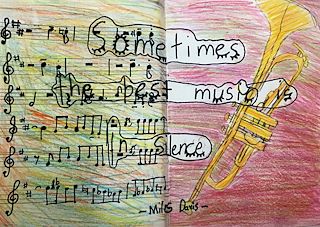 Sometimes
the best music
Silence
- Miles Davis -